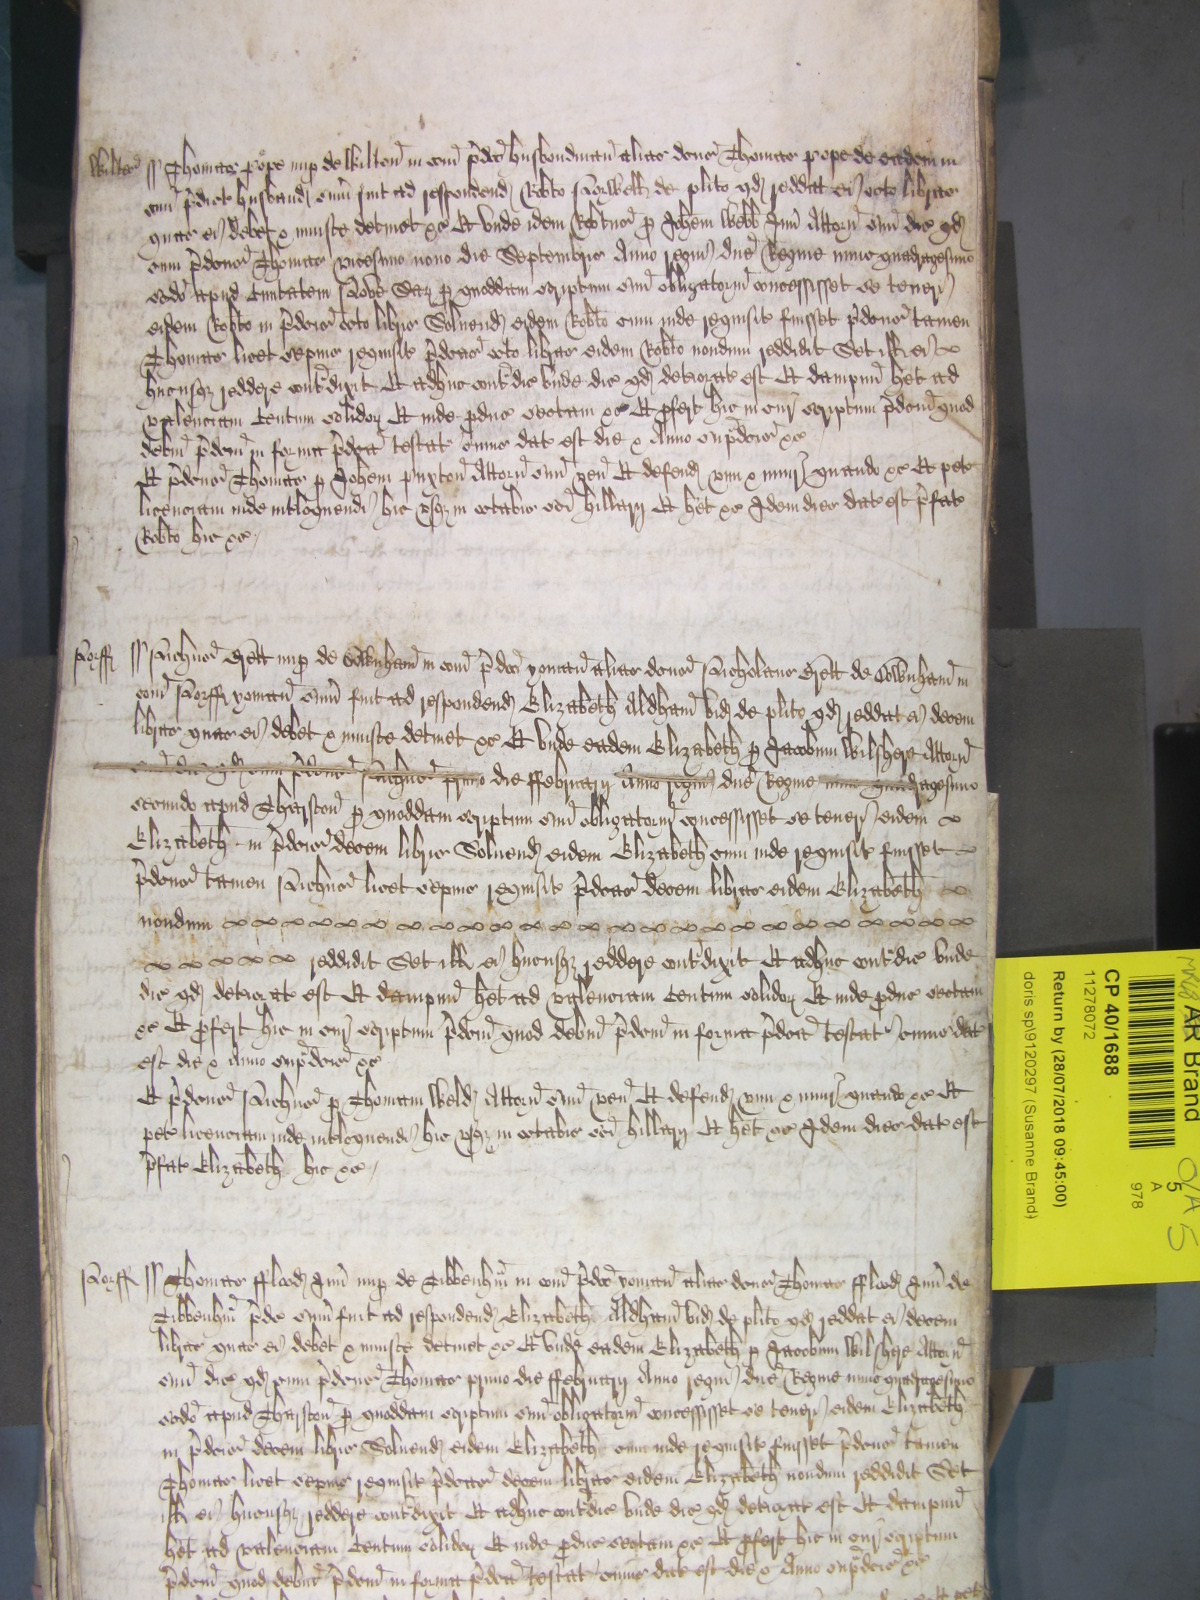 Wiltes ss Thomas Pope nup de Wilton in com pdco husbondman alias dcus Thomas Pope de eadem in
com pdict husband sum fuit ad respondend Robto de plito qd reddat ei octo libras
quas ei debet & iniuste detinet &c Et unde idem Robtus p Johem Webb Attorn suu dic qd
cum pdcus Thomas vicesimo nono die Septembris Anno regni dne Regine nunc quadragesimo
scdo apud Civitatem p quoddam scriptum suu obligatoriu concessisset se teneri
eidem Robto in pdcis octo libris Solvend eidem Robto cum inde requisit fuisset pdcus tamen
Thomas licet sepius requisit pdcas octo libras eidem Robto nondum reddidit Set ill ei
hucusqz reddere contdixit Et adhuc contdic unde dic qd deteriorat est Et dampnu het ad
valenciam Centum solidoz Et inde pduc sectam &c Et pfert hic in cur scriptum pdcm quod
debitu pdcm in forma pdca testat cuius dat est die & Anno supdcis &c
Et pdcus Thomas p Johem Attorn suu ven Et defend vim & iniur quando &c Et pet
licenciam inde inteloquendi hic usqz in octabis sci Hillarij Et het &c Idem dies dat est pfat
Robto hic &c
Norff ss Nichus nup de in com pdco yoman alias dcus Nicholaus de in
com Norff yoman sum fuit ad respondend Elizabeth Aldham vid de plito qd reddat ei decem
libras quas ei debet & iniuste detinet &c Et unde eadem Elizabeth p Jacobum Wilshere Attorn
suu dic qd cum pdcus Nichus primo die ffebruarij Anno regni dne Regine nunc quadragesimo
secundo apud Tharston p quoddam scriptum suu obligatoriu concessisset se teneri eidem
Elizabeth in pdcis decem libris Solvend eidem Elizabeth cum inde requisit fuisset
pdcus tamen Nichus licet sepius requisit pdcas decem libras eidem Elizabeth
nondum
reddidit Set ill ei hucusqz reddere contdixit Et adhuc contdic unde
dic qd deteriorat est Et dampnu het ad valenciam Centum solidoz Et inde pduc sectam
&c Et pfert hic in cur scriptum pdcm quod debitu pdcm in forma pdca testat cuius dat
est die & Anno supdcis &c
Et pdcus Nichus p Thomam Weld Attorn suu ven Et defend vim & iniur quando &c Et
pet licenciam inde inteloquendi hic usqz in octabis sci Hillarij Et het &c Idem dies dat est
pfat Elizabeth hic &c
Norff ss Thomas fflood nup de Tibbenhm in com pdco yoman alias dcus Thomas fflood de
Tibbenhm pdco sum fuit ad respondend Elizabeth Aldham vid de plito qd reddat ei decem
libras quas ei debet & iniuste detinet &c Et unde eadem Elizabeth p Jacobum Wilshere Attorn
suu dic qd cum pdcus Thomas primo die ffebruarij Anno regni dne Regine nunc quadragesimo
scdo apud Tharston p quoddam scriptum suu obligatoriu concessisset se teneri eidem Elizabeth
in pdcis decem libris Solvend eidem Elizabeth cum inde requisit fuisset pdcus tamen
Thomas licet sepius requisit pdcas decem libras eidem Elizabeth nondum reddidit Set
ill ei hucusqz reddere contdixit Et adhuc contdic unde dic qd deteriorat est Et dampnu
het ad valenciam Centum solidoz Et inde pduc sectam &c Et pfert hic in cur scriptum
pdcm quod debitu pdcm in forma pdca testat cuius dat est die & Anno supdcis &c
AR Brand
5
A
978
O/A 5
CP 40/1688
11278072
Return by (28/07/2018 09:45:00)
doris spl9120297 (Susanne Brand)